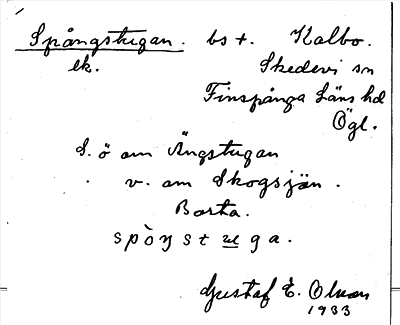 Spångstugan. bst. Kalbo.
ek. Skedevi sn
Finspånga Läns hd
Ögl.
S. ö om Ängstugan
v. om Skogsjön.
Borta.
spòŋstuga.
Gustaf E. Olson
1933